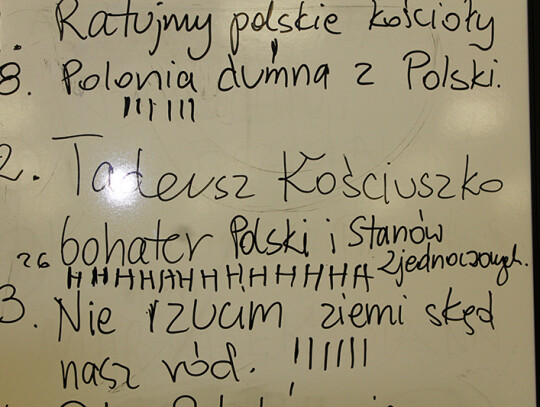 . Ratujmy polskie kościoły
8. Polonia dumna z Polski.
2. Tadeusz Kościuszko
bohater Polski i Stanów
26 Zjednoczonych.
3. Nie rzucim ziemi skąd
nasz ród.